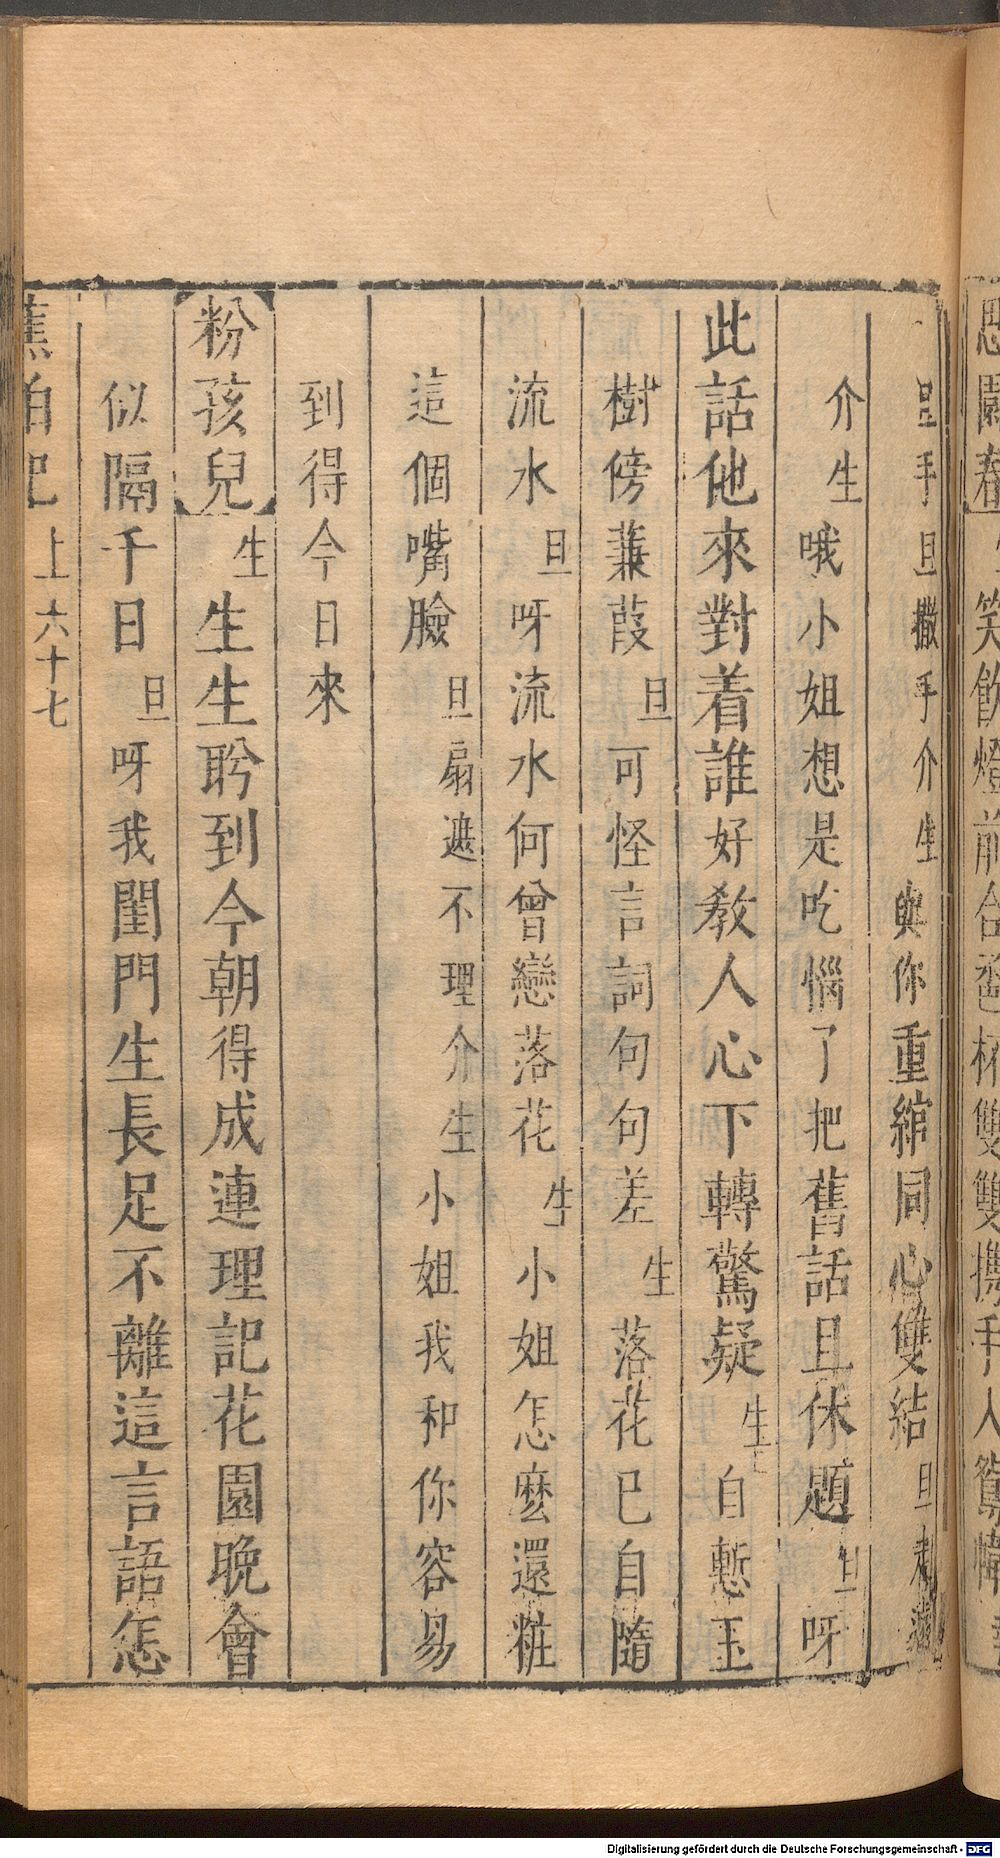 笑飲燈前合巹杯雙雙携手人鴛幃
手旦撒手介生與你重綰同心雙結旦
介生哦小姐想是吃惱了把舊話且休題旦呀
此話他來對着誰好教人心下轉驚疑生自慙玉
樹傍蒹葭旦可怪言詞句句差生落花已自隨
流水旦呀流水何曾戀落花生小姐怎麽還粧
這個嘴臉旦扇遮不理介生小姐我和你容易
到得今日來
粉孩兒生生生盻到今朝得成連理記花園晚會
似隔千日旦呀我閨門生長足不離這言語怎
蕉帕記上六十七
Digitalisierung gefördert durch die Deutsche Forschungsgemeinschaft - DFG